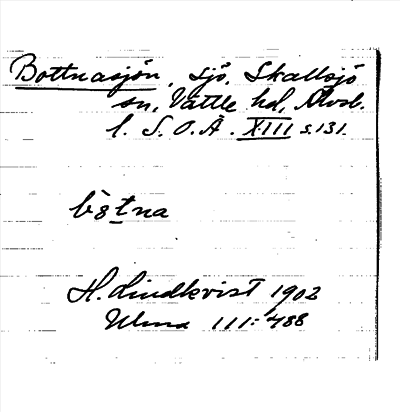 Bottnasjön, sjö, Skallsjö
sn, Vättle hd, Älvsb.
l. S.O.Ä. XIII s.131.
bo̠tna
H. Lindkvist 1902
Ulma 111:488